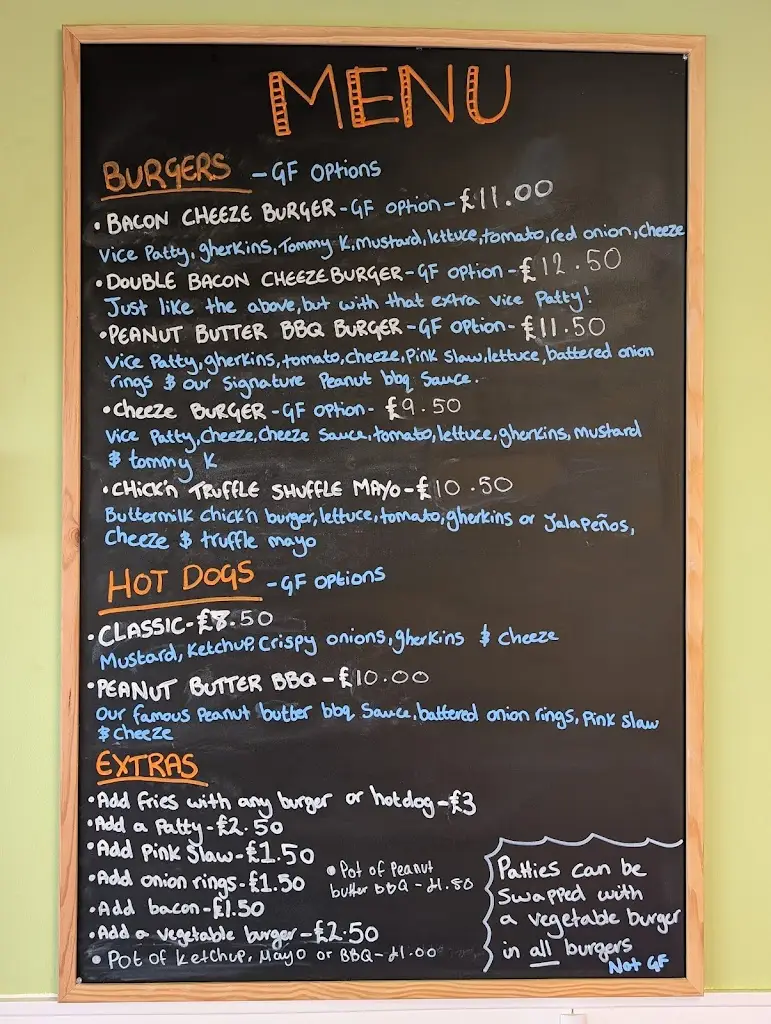 MENU
BURGERS - GF Options
• BACON CHEEZE BURGER - GF option - £11.00
Vice Patty, gherkins, Tommy K, mustard, lettuce, tomato, red onion, cheeze
• DOUBLE BACON CHEEZE BURGER - GF option - £12.50
Just like the above, but with that extra vice Patty!
• PEANUT BUTTER BBQ BURGER - GF option - £11.50
Vice Patty, gherkins, tomato, cheeze, Pink slaw, lettuce, battered onion
rings & our signature Peanut bbq sauce.
• Cheeze BURGER - GF option - £9.50
Vice Patty, Cheeze, Cheeze Sauce, tomato, lettuce, gherkins, mustard
& tommy K
• CHICK'N TRUFFLE SHUFFLE MAYO - £10.50
Buttermilk chick'n burger, lettuce, tomato, gherkins or Jalapeños,
Cheeze & truffle mayo
HOT DOGS - GF options
• CLASSIC - £8.50
Mustard, Ketchup, Crispy onions, gherkins & Cheeze
• PEANUT BUTTER BBQ - £10.00
Our famous Peanut butter bbq Sauce, battered onion rings, Pink slaw
& cheeze
EXTRAS
• Add fries with any burger or hotdog - £3
• Add a Patty - £2.50
• Add Pink Slaw - £1.50
• Add onion rings - £1.50
• Add bacon - £1.50
• Add a vegetable burger - £2.50
• Pot of Ketchup, Mayo or BBQ - £1.00
• Pot of Peanut
butter BBQ - £1.50
Patties can be
Swapped with
a vegetable burger
in all burgers
Not GF